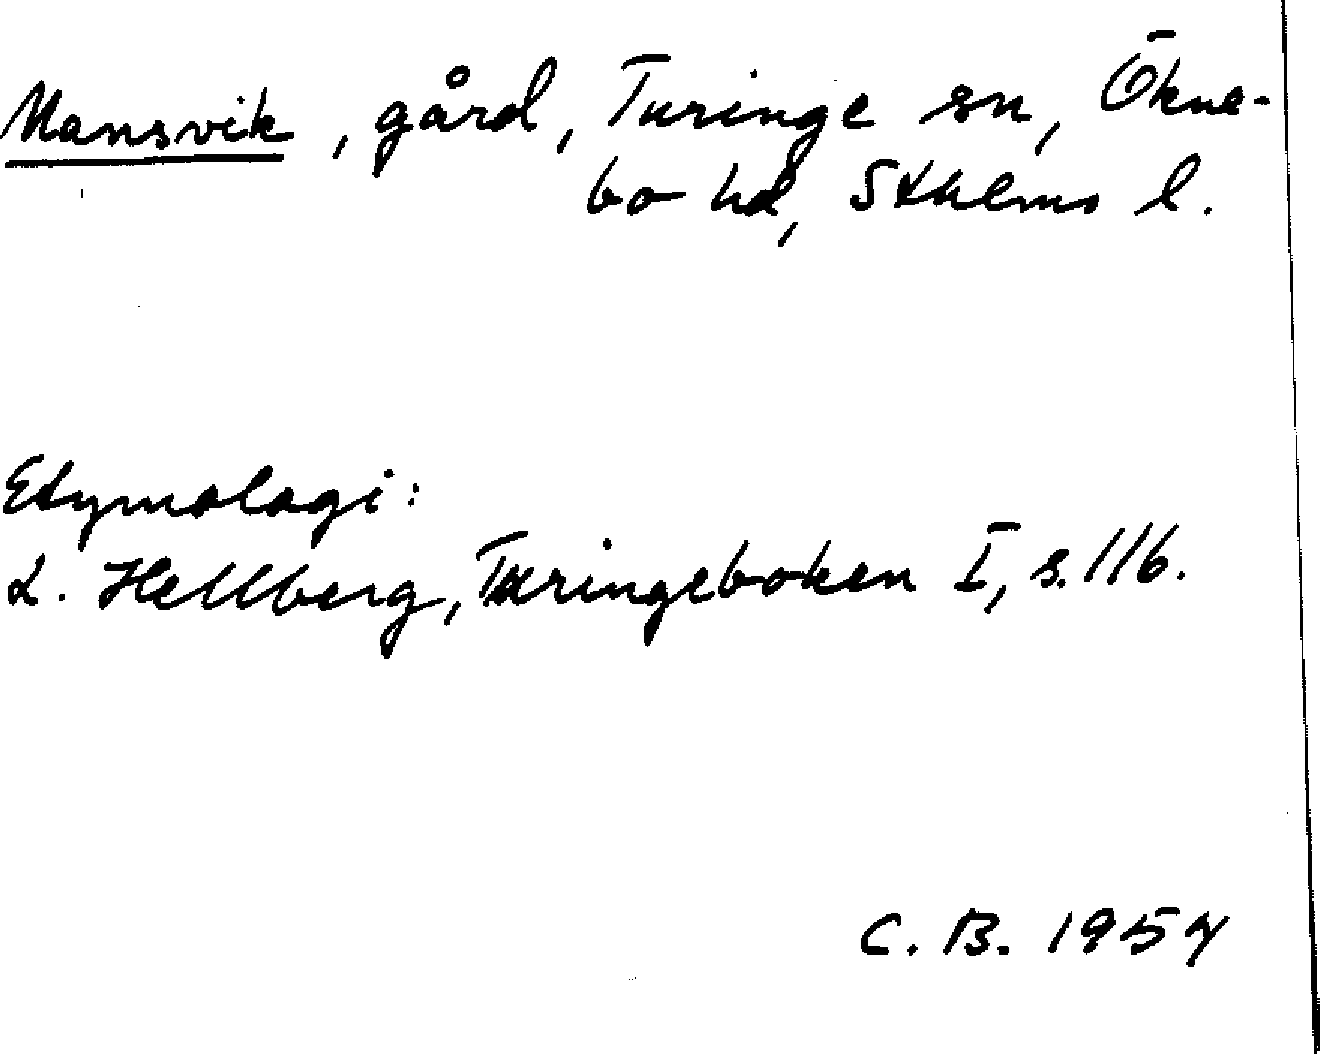 Mansvik, gård, Turinge sn, Ökne-
bo hd, Sthlms l.
Etymologi:
L. Hellberg, Turingeboken I, s. 116.
C. B. 1957